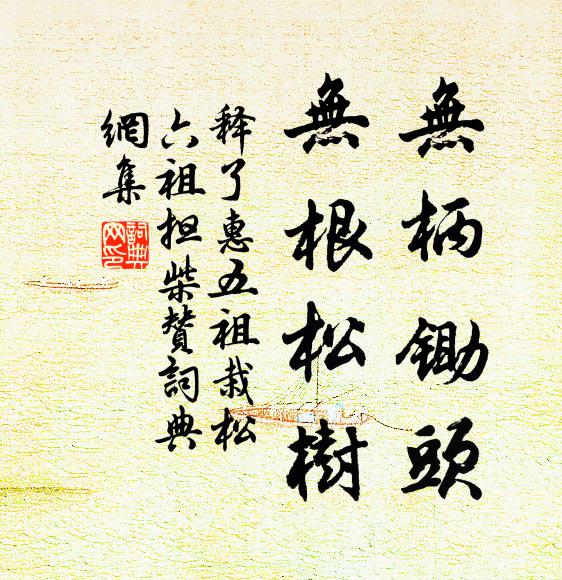 無柄鋤頭
無根松樹
釋了惠五祖栽松
六祖担柴贊詞典
網集
詞典
網印